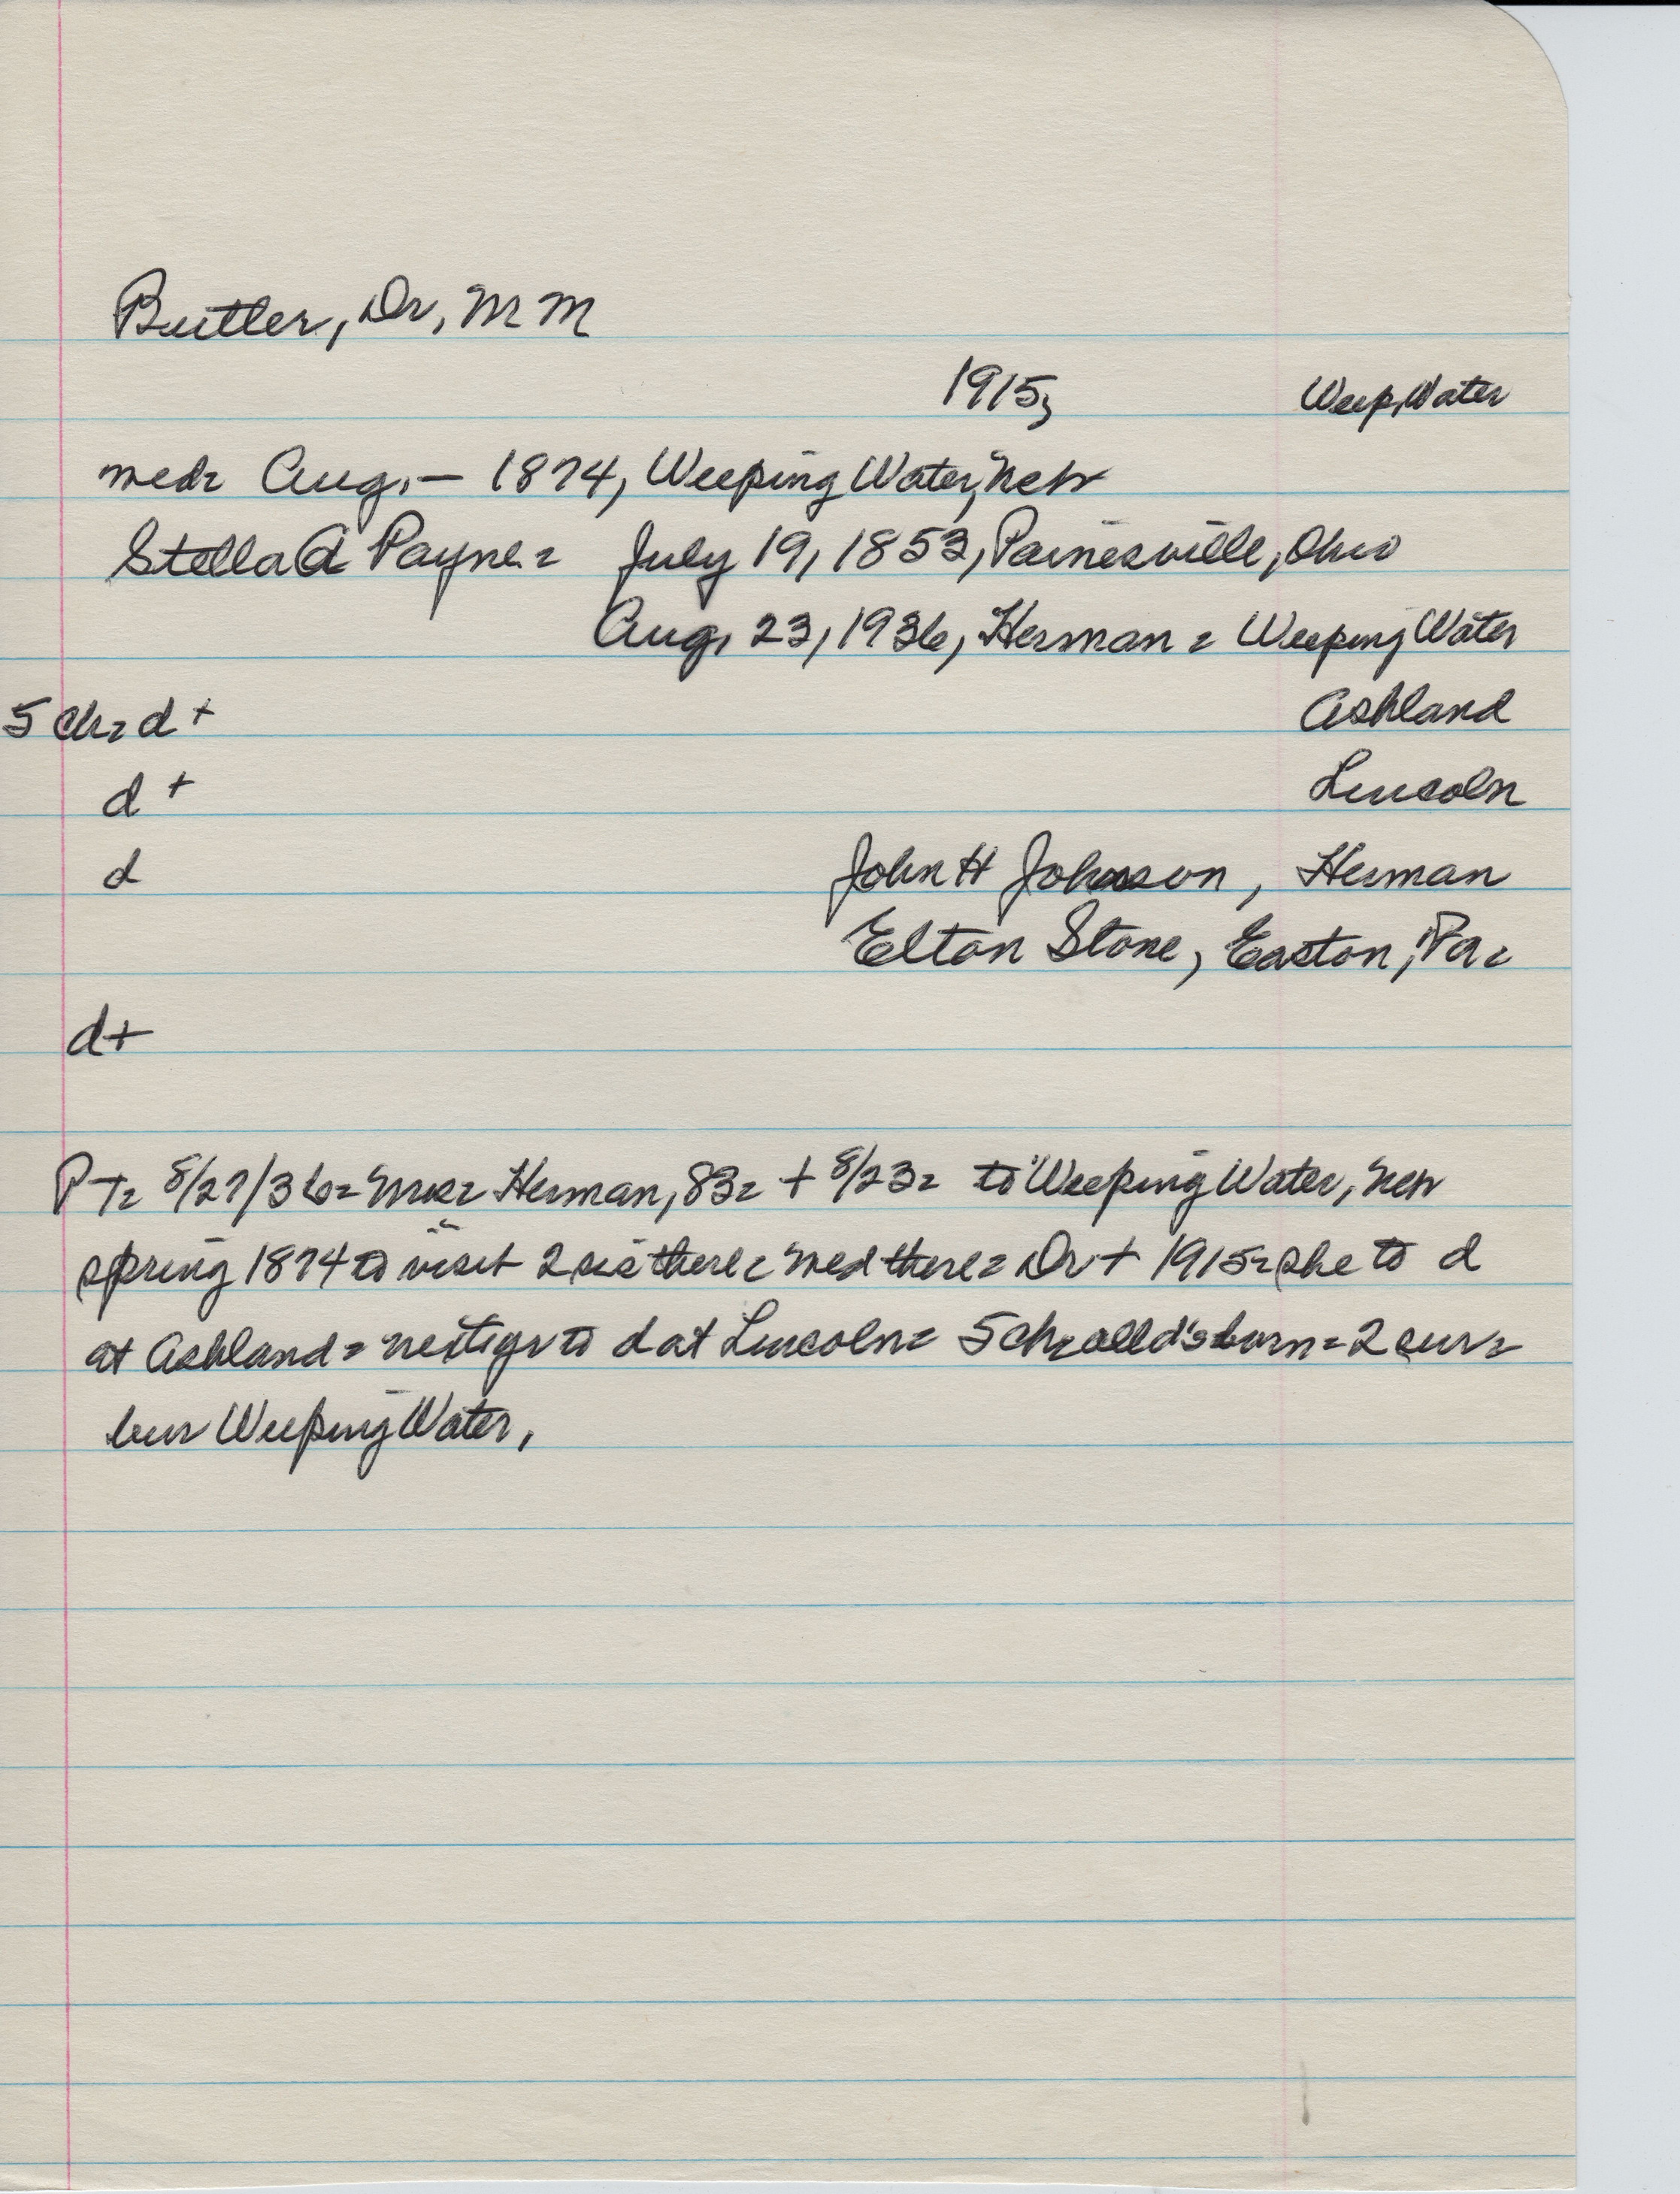 Butler, Dr, M M
1915, Weep, Water
med= Aug, — 1874, Weeping Water, Neb
Stella A Payne = July 19, 1853, Painesville, Ohio
Aug, 23, 1936, Herman = Weeping Water
5 ch= d + Ashland
d + Lincoln
d John H Johnson, Herman
Elton Stone, Easton, Pa=
d+
PT= 8/27/36= Herman, 83= + 8/23= to Weeping Water, Neb
spring 1874 to visit 2 sis there= med there= Dr + 1915= she to d
at Ashland= to d at Lincoln= 5 ch= all d's born= 2 sur=
bur Weeping Water,